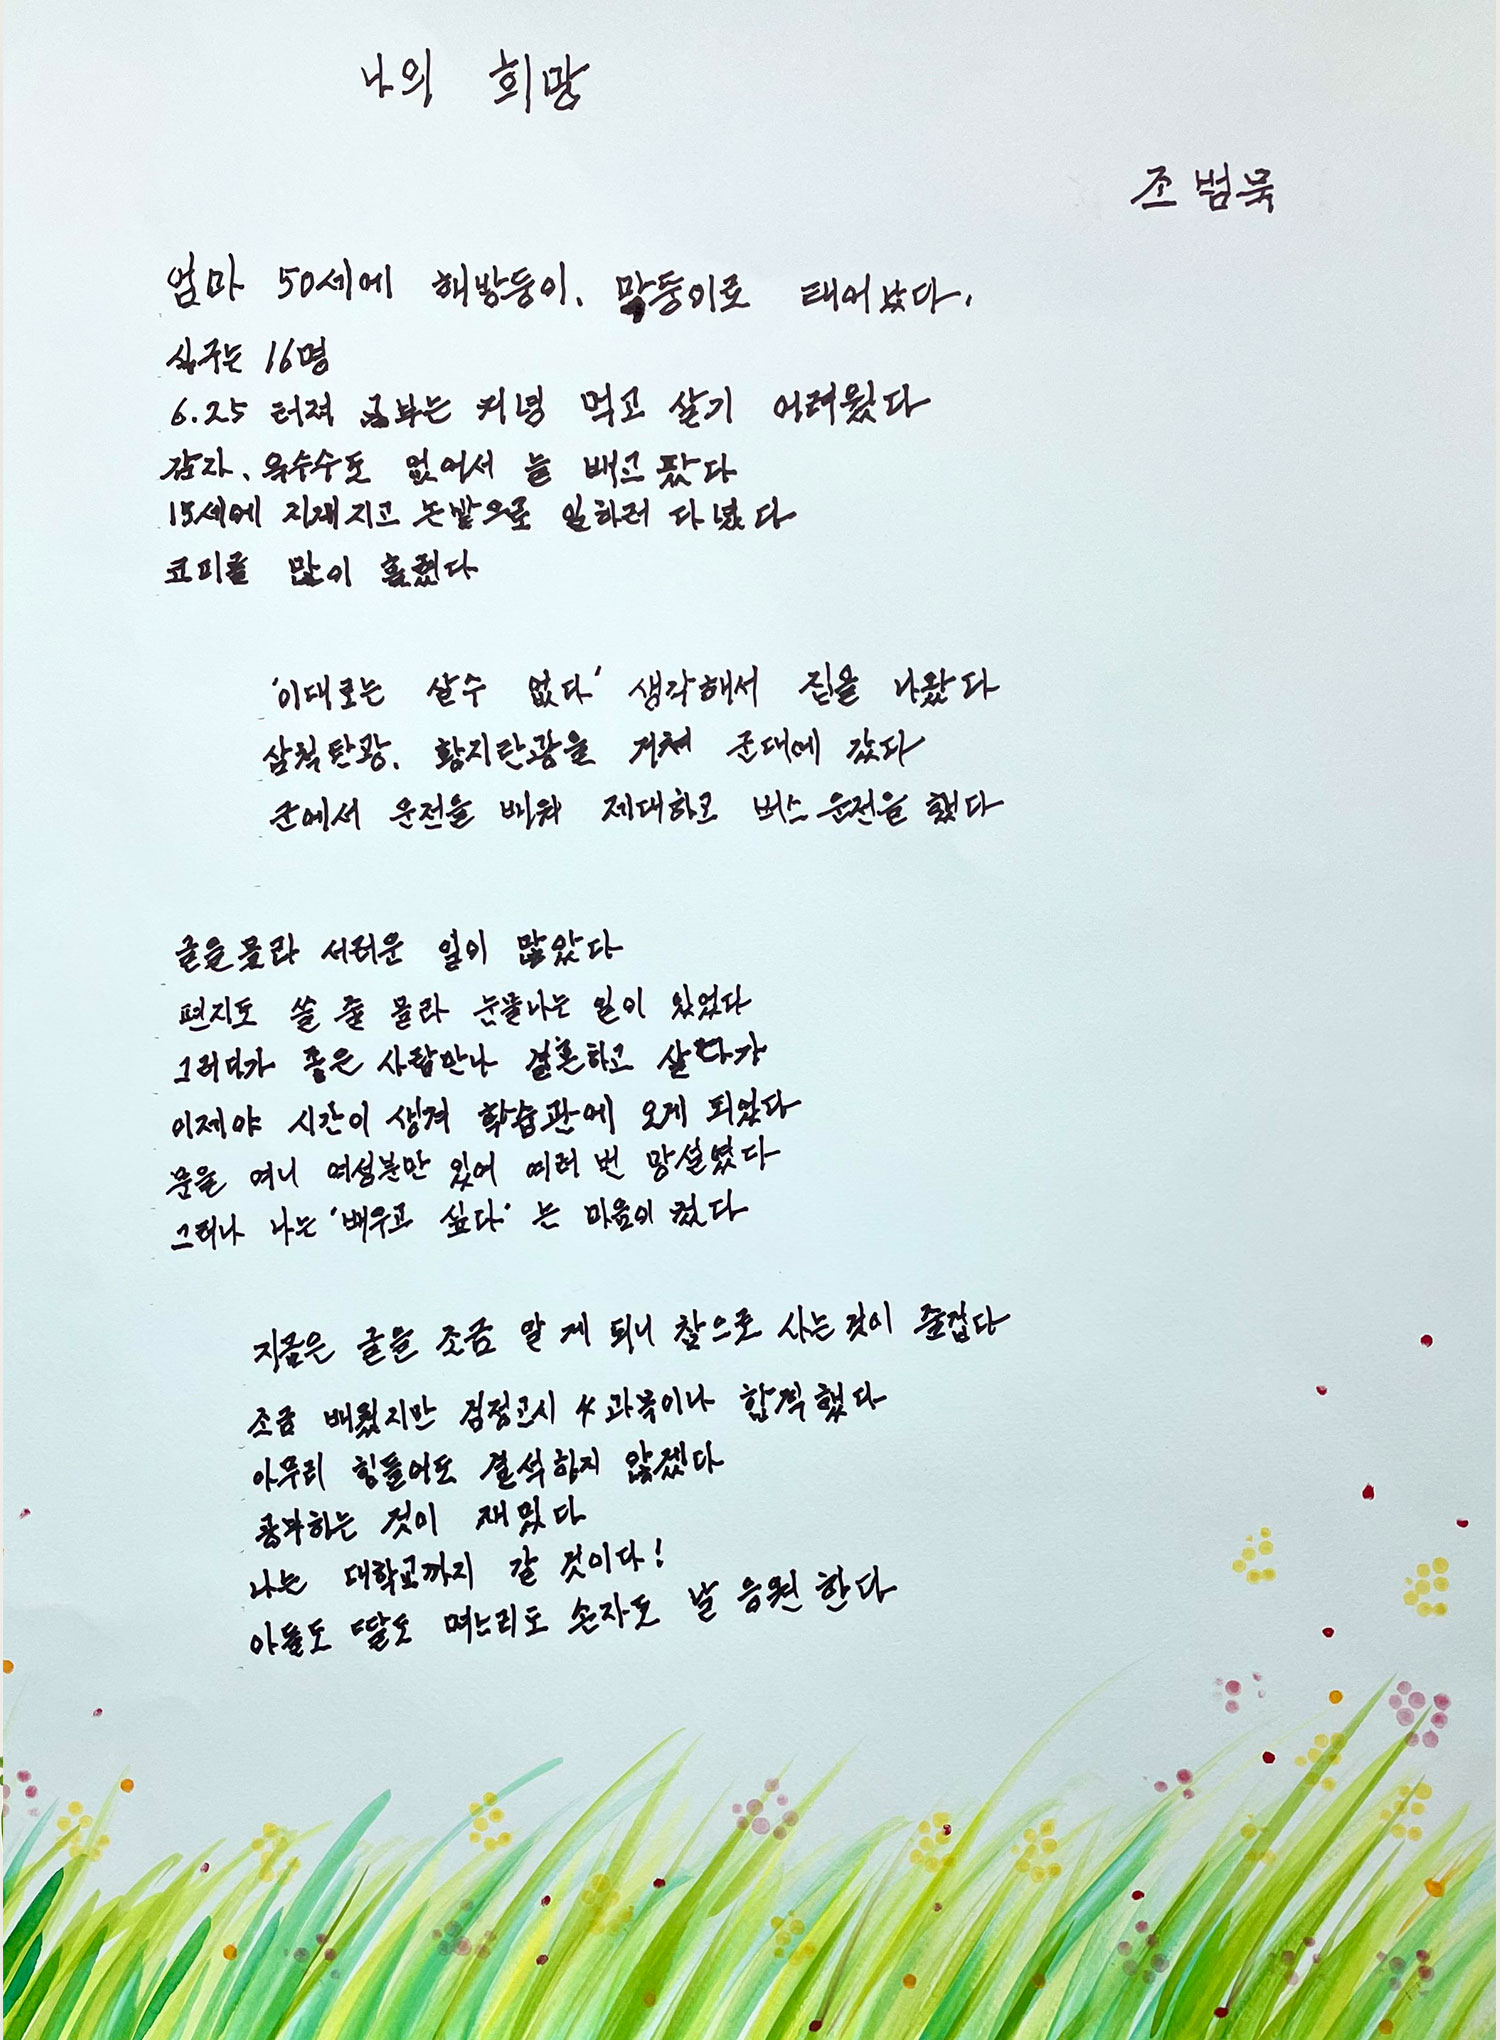 나의 희망
조범묵
엄마 50세에 해방둥이, 막둥이로 태어났다.
식구는 16명
6.25 터져 공부는 커녕 먹고 살기 어려웠다
감자, 옥수수도 없어서 늘 배고팠다
15세에 지게지고 논밭으로 일하러 다녔다
코피를 많이 흘렸다
'이대로는 살수 없다' 생각해서 집을 나왔다
삼척탄광, 황지탄광을 거쳐 군대에 갔다
군에서 운전을 배워 제대하고 버스 운전을 했다
글을 몰라 서러운 일이 많았다
편지도 쓸 줄 몰라 눈물나는 일이 있었다
그러다가 좋은 사람만나 결혼하고 살다가
이제야 시간이 생겨 학습관에 오게 되었다
문을 여니 여성분만 있어 여러 번 망설였다
그러나 나는 '배우고 싶다' 는 마음이 컸다
지금은 글을 조금 알 게 되니 참으로 사는 것이 즐겁다
조금 배웠지만 검정고시 4과목이나 합격했다
아무리 힘들어도 결석하지 않겠다
공부하는 것이 재밌다
나는 대학교까지 갈 것이다!
아들도 딸도 며느리도 손자도 날 응원 한다